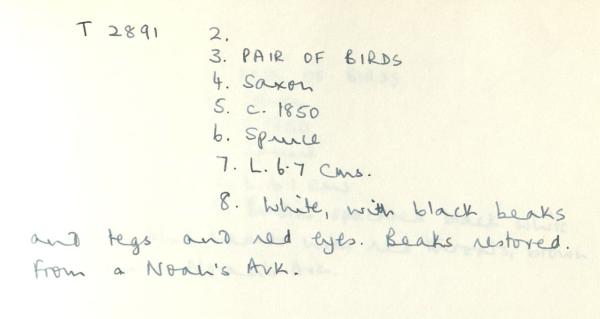 T 2891 2.
3. PAIR OF BIRDS
4. Saxon
5. c. 1850
6. Spruce
7. L. 6.7 cms.
8. White, with black beaks
and legs and red eyes. Beaks restored.
From a Noah's Ark.